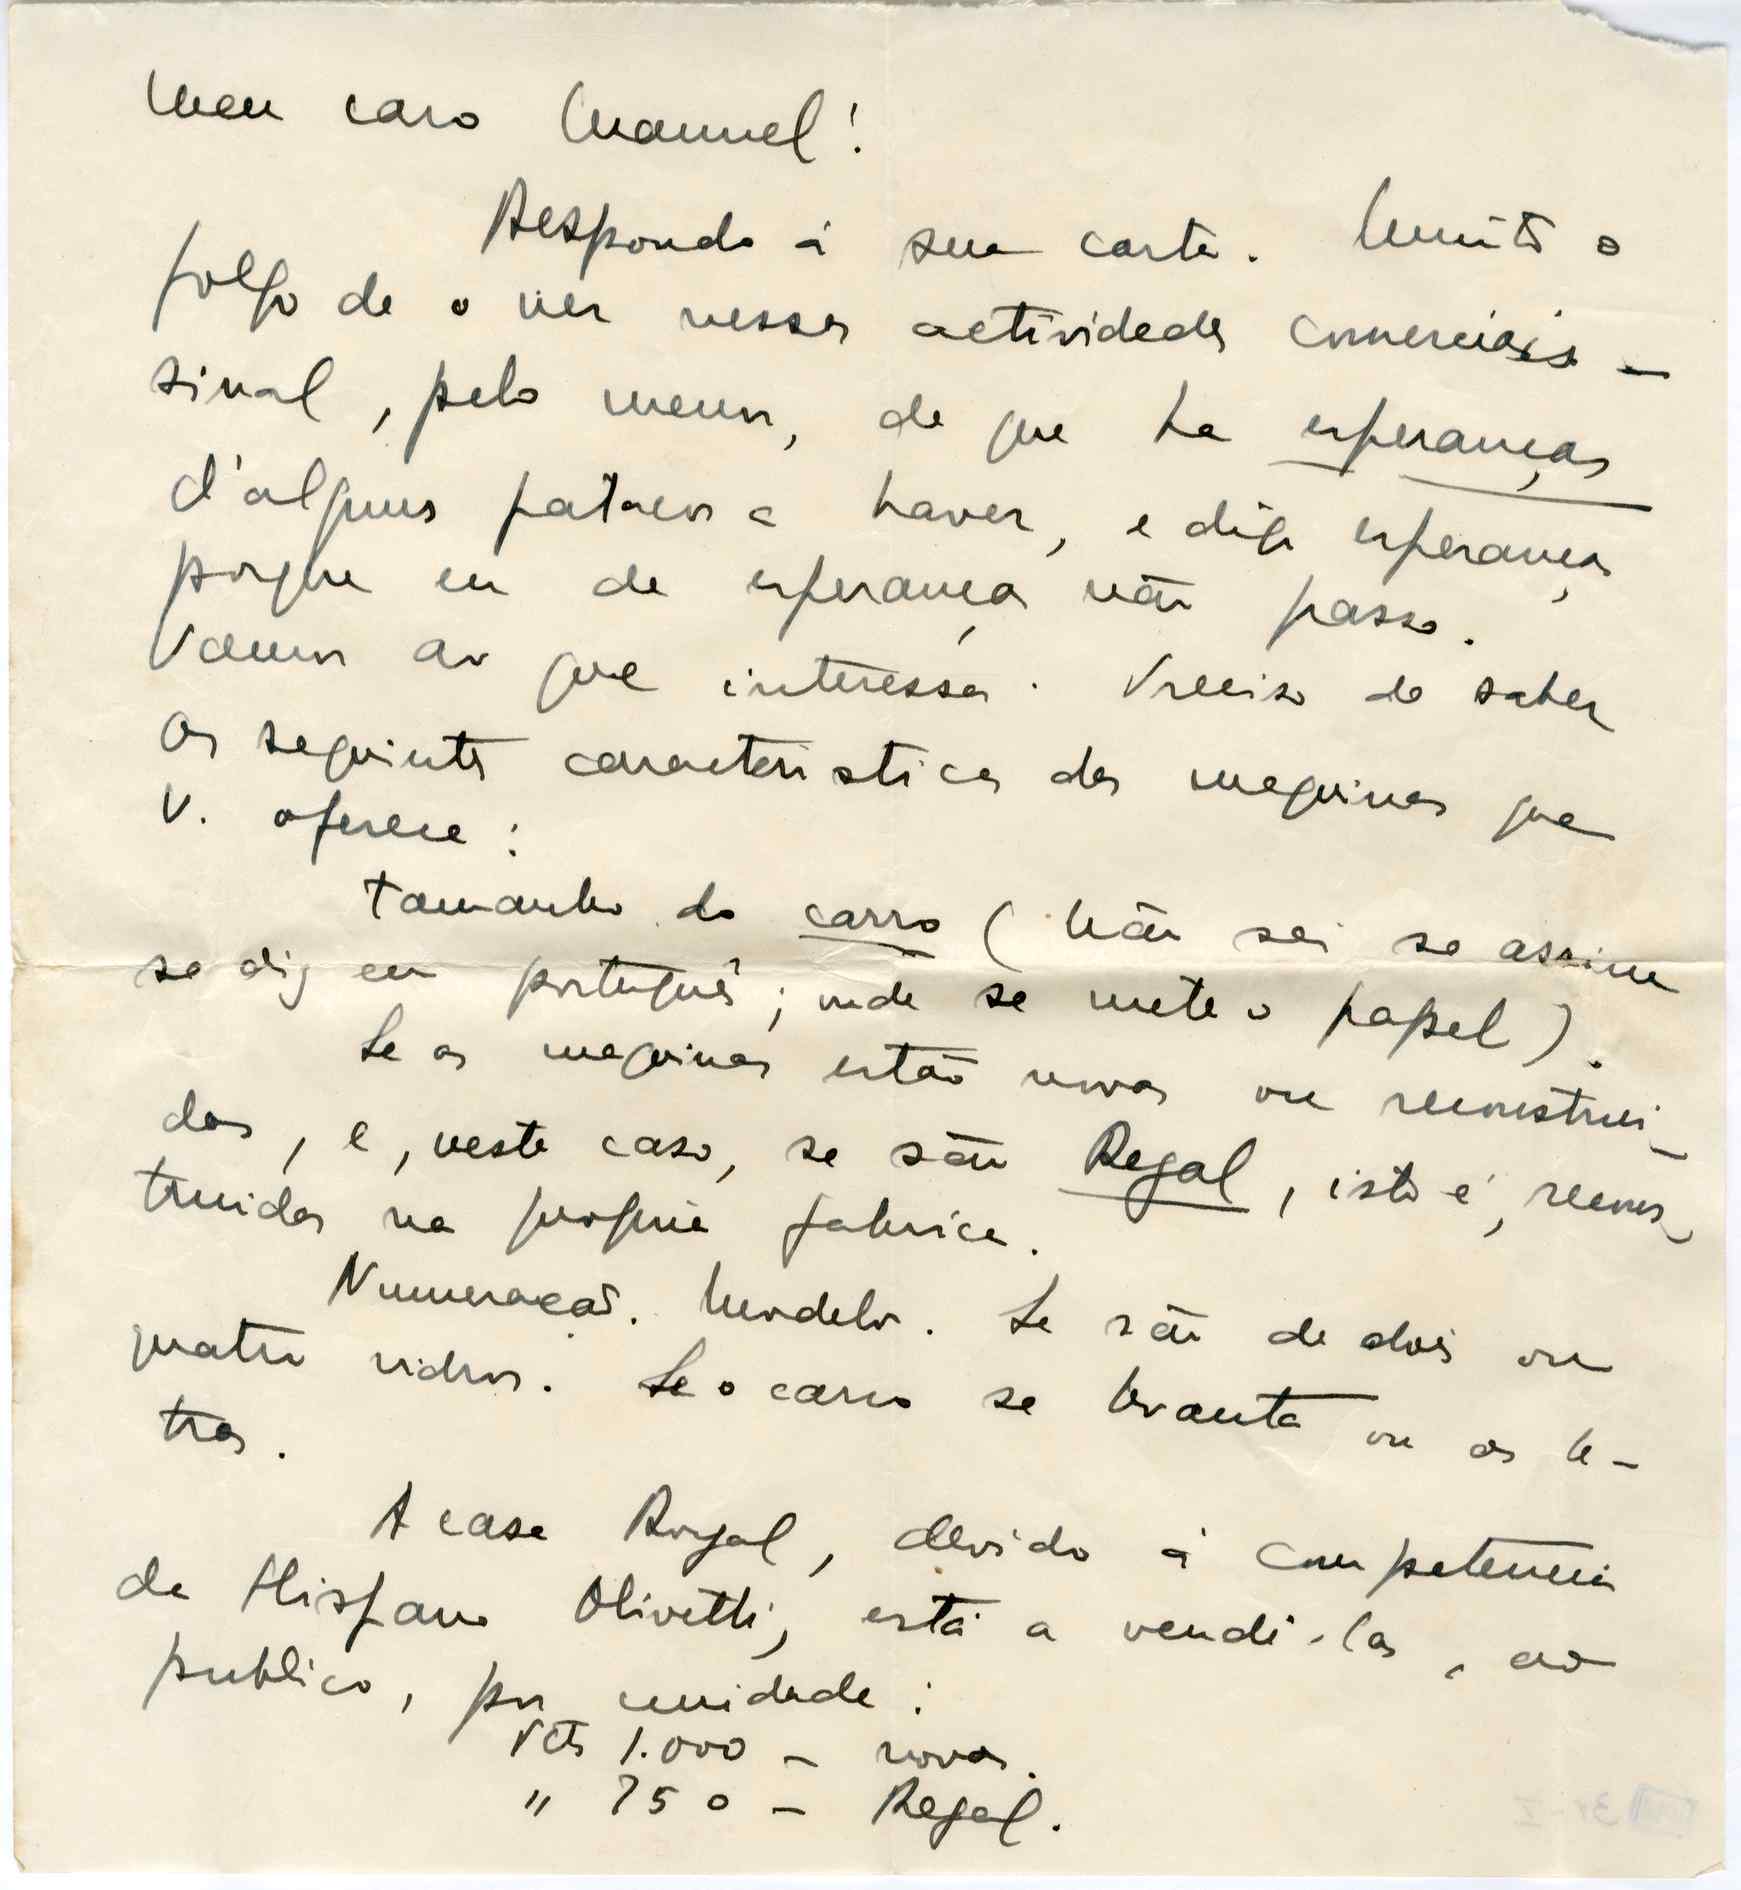 Meu caro Manuel!
Respondo á sua carta. Muito o
folgo de o ver nessas actividades comerciais –
sinal, pelo menos, de que ha esperanças
d'alguns patacos a haver, e digo esperanças
porque eu de esperanças não passo.
Vamos ao que interessa. Preciso de saber
as seguintes caracteristicas das maquinas que
V. oferece:
Tamanho do carro (Não sei se assim
se diz em português; onde se mete o papel).
Se as maquinas estão novas ou reconstrui-
das, e, neste caso, se são Regal, isto é, recons-
truidas na propria fabrica.
Numeração. Modelos. Se são de dois ou
quatro vidros. Se o carro se levanta ou as le-
tras.
A casa Royal, devido á competencia
da Hispano Olivetti, está a vendê-las, ao
publico, por unidade:
Pts 1.000 – novas.
" 750 – Regal.